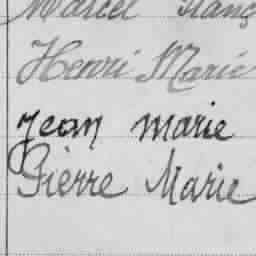 Marcel Franç
Henri Marie
Jean marie
Pierre Marie